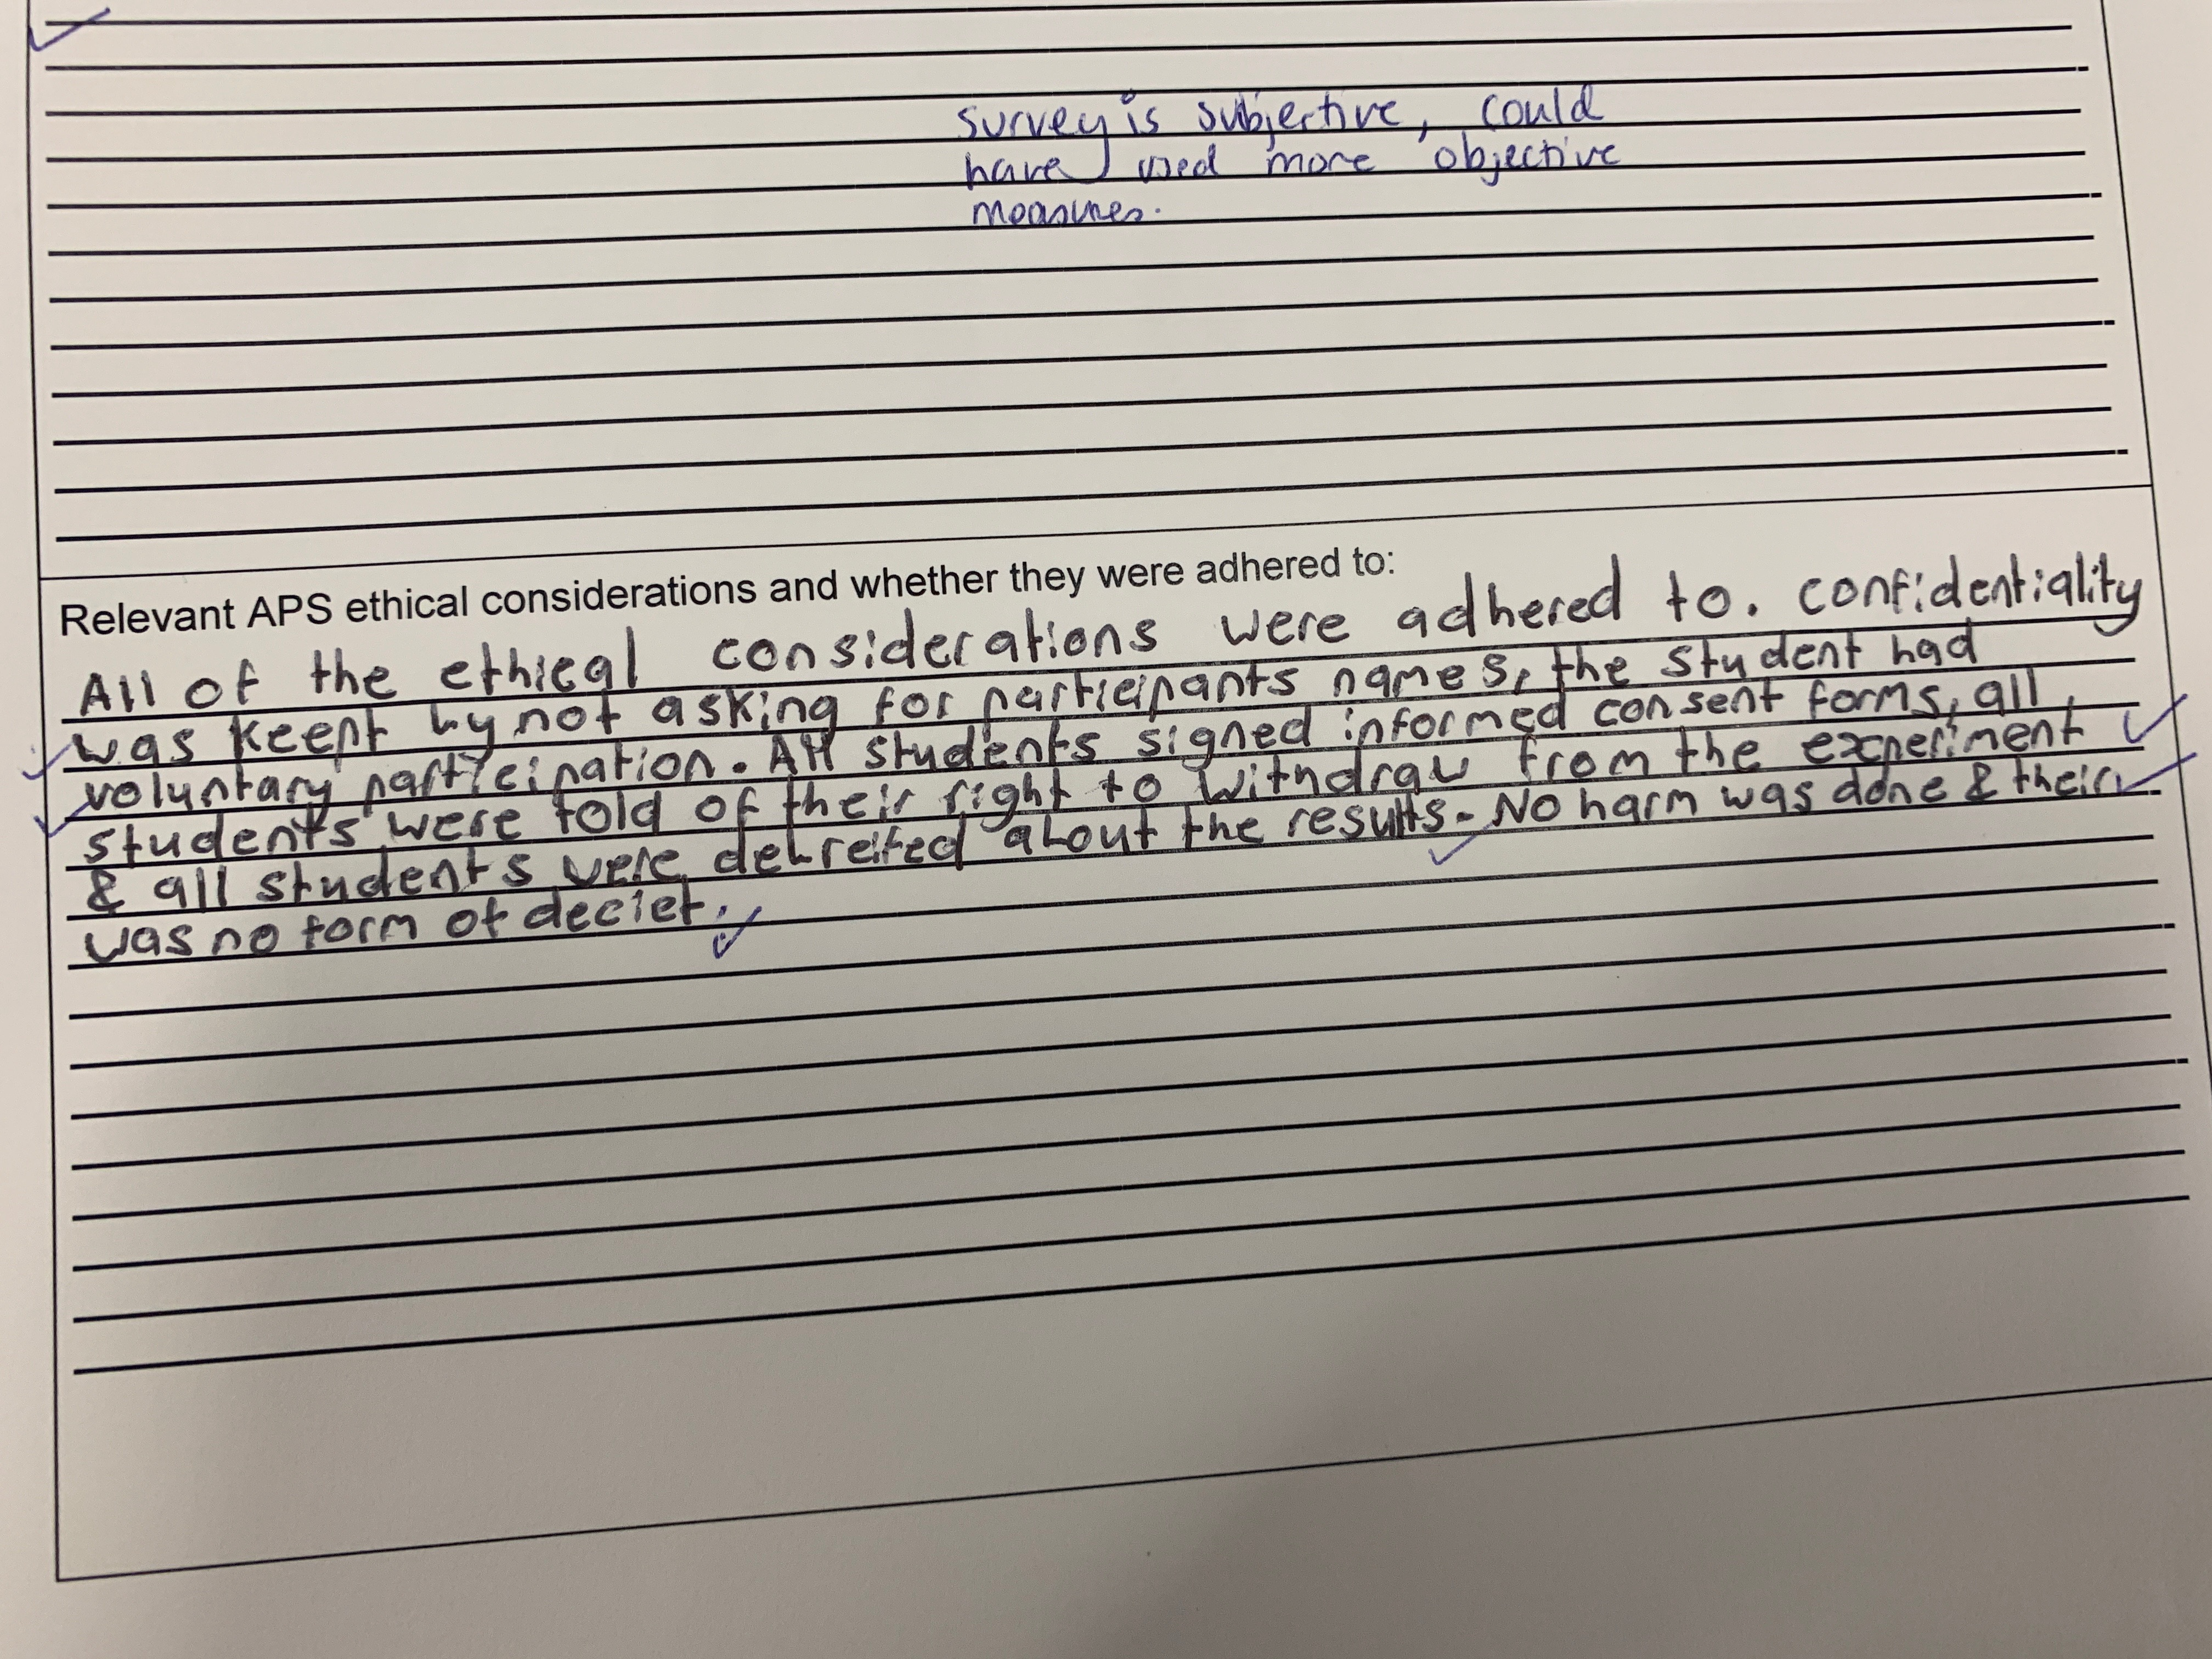 survey is subjective, could
have used more objective
measures.
Relevant APS ethical considerations and whether they were adhered to:
All of the ethical considerations were adhered to. confidentiality
was keept by not asking for participants names, the student had
voluntary participation. All students signed informed consent forms, all
students were told of their right to withdraw from the experiment
& all students were debreifed about the results. No harm was done & their
was no form of deciet.